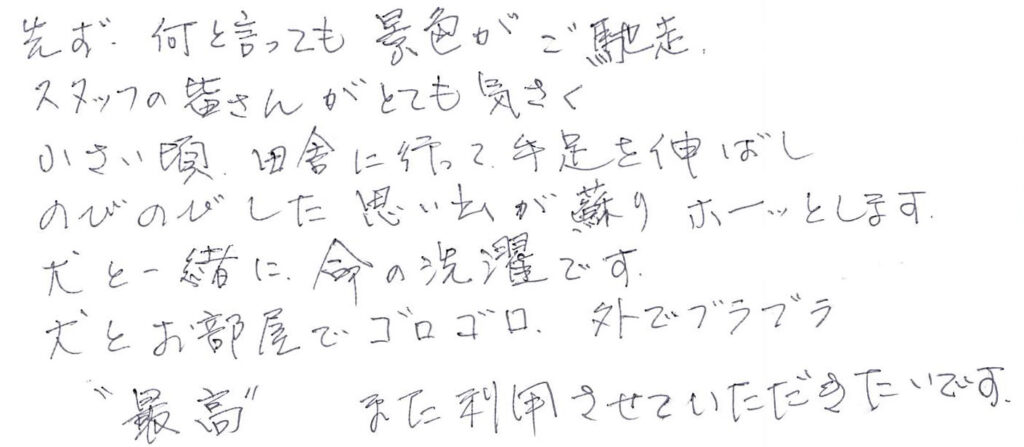 先ず、何と言っても景色がご馳走、
スタッフの皆さんがとても気さく
小さい頃、田舎に行って、手足を伸ばし
のびのびした思い出が蘇りホーッとします。
犬と一緒に、命の洗濯です。
犬とお部屋でゴロゴロ、外でブラブラ
"最高" また利用させていただきたいです。